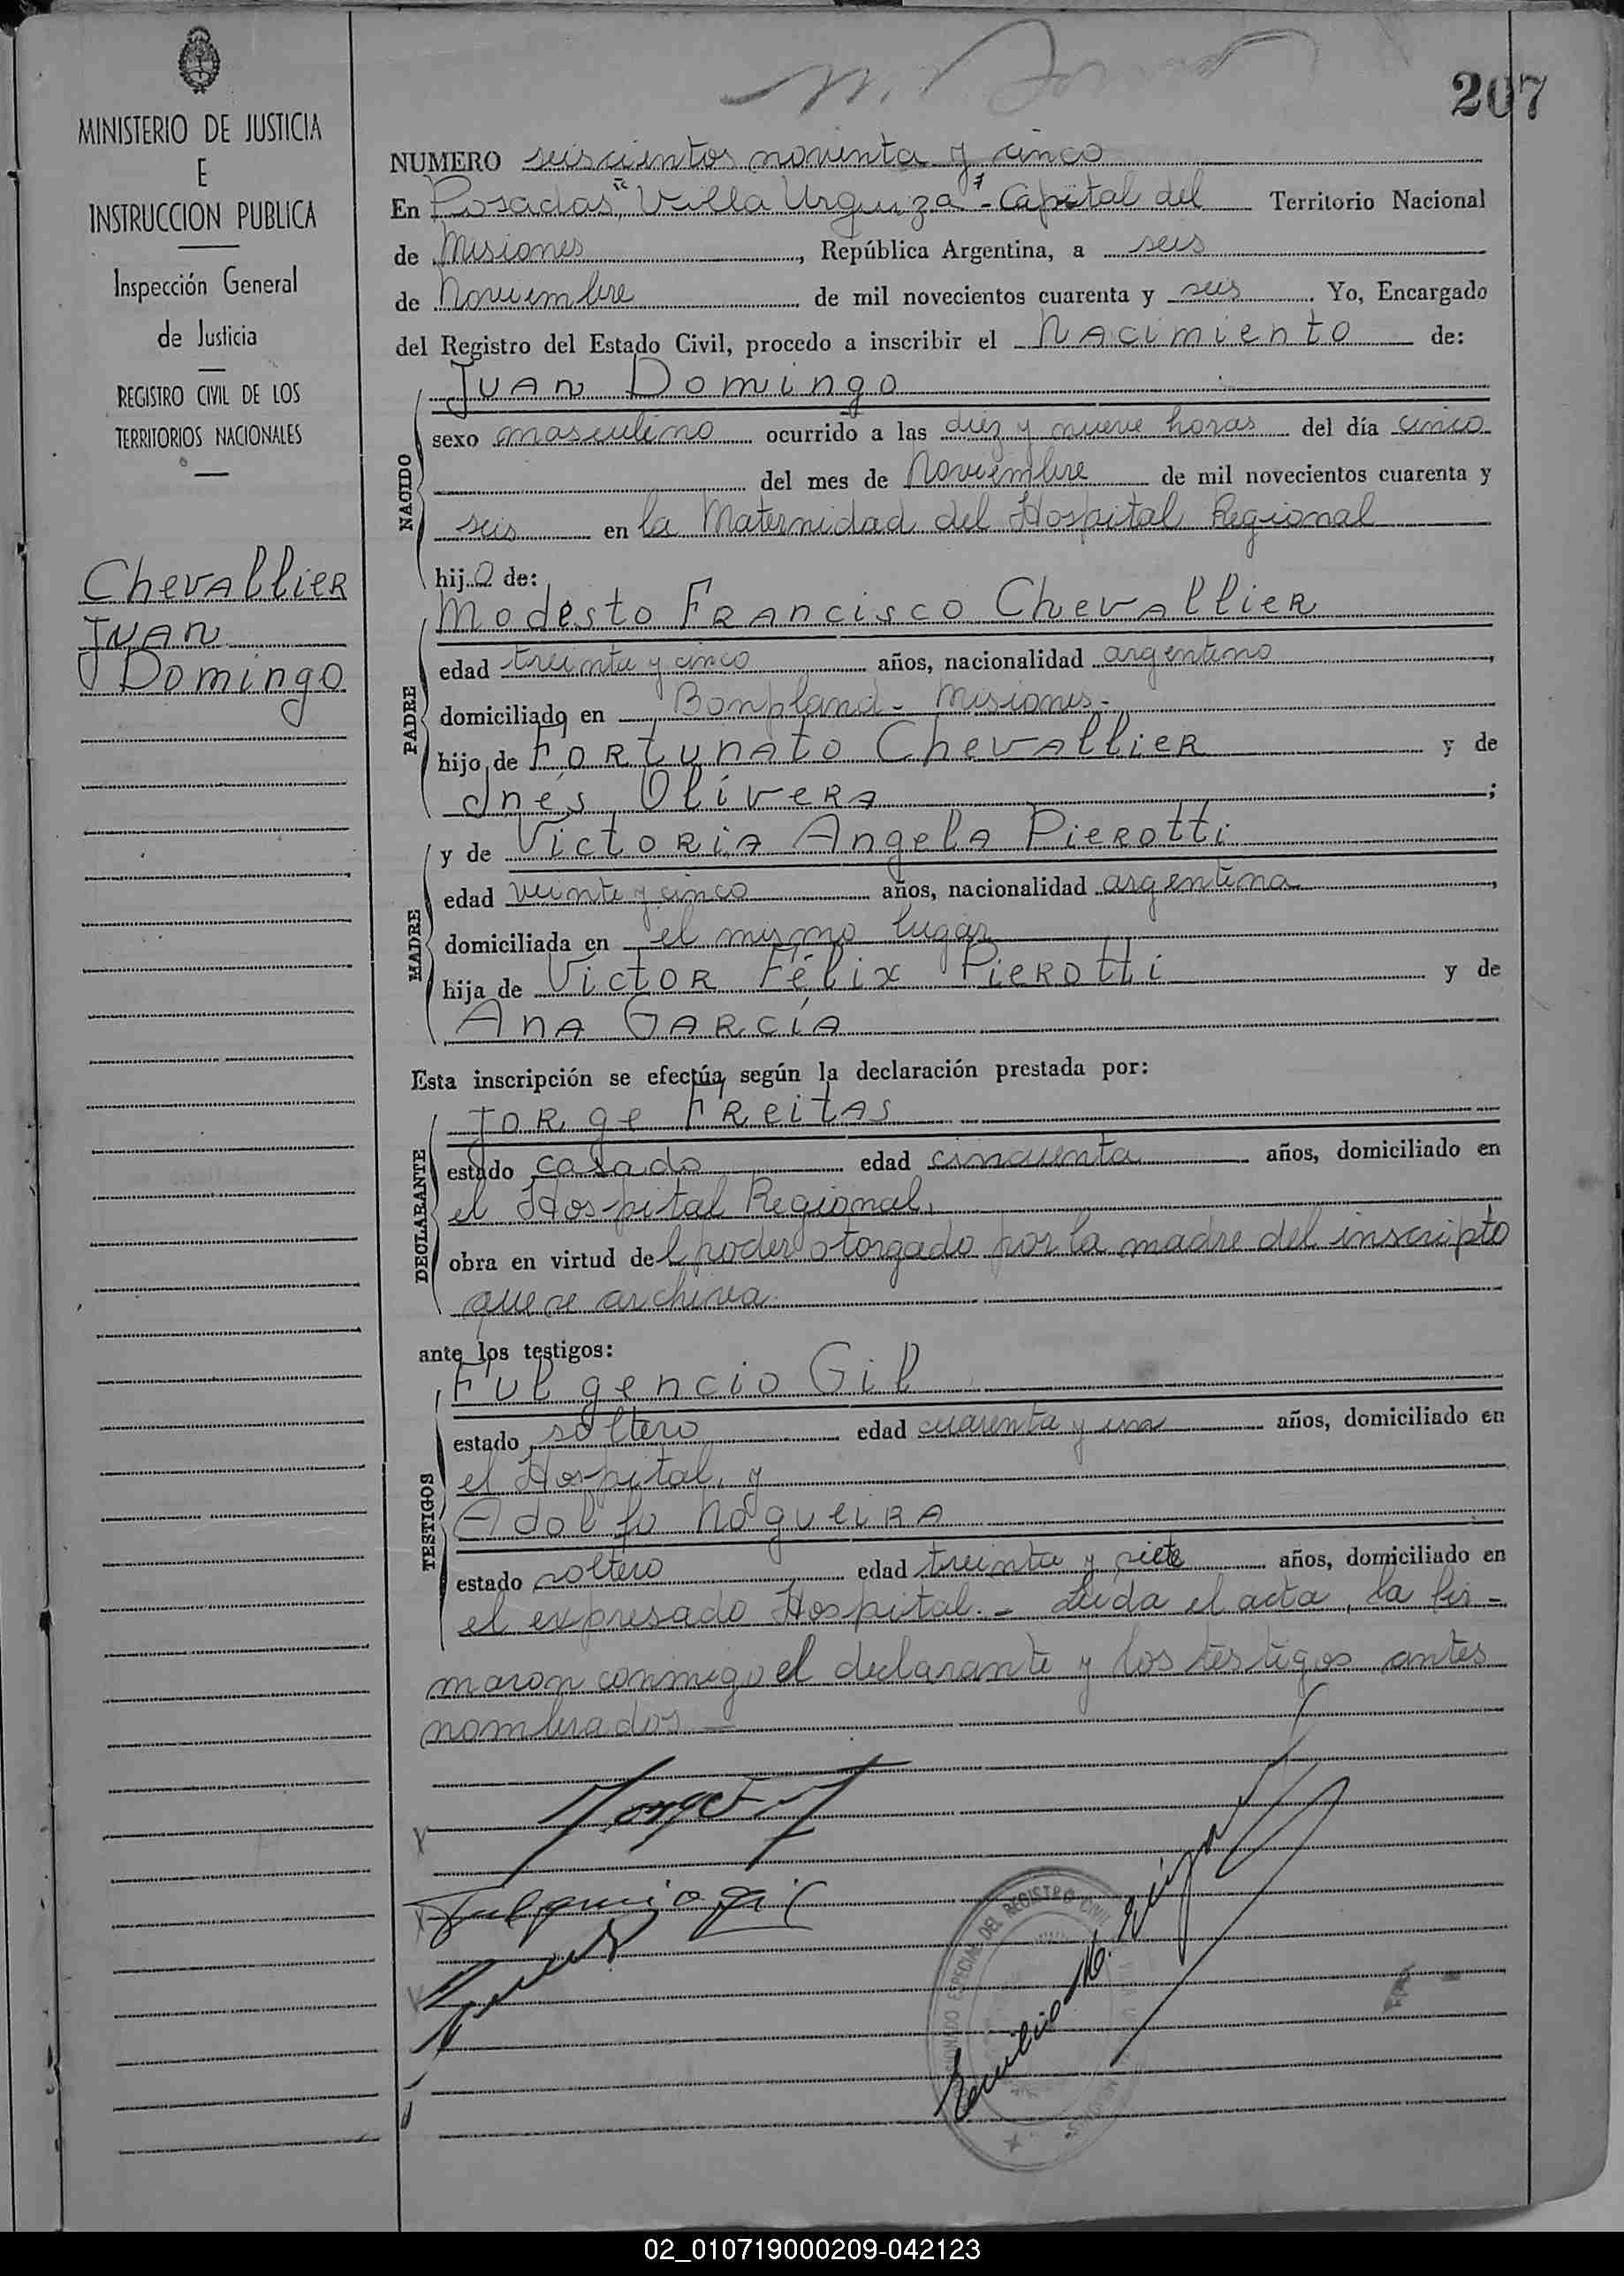 207
MINISTERIO DE JUSTICIA
E
INSTRUCCION PUBLICA
Inspección General
de Justicia
REGISTRO CIVIL DE LOS
TERRITORIOS NACIONALES
Chevallier
Juan
Domingo
NUMERO seiscientos noventa y cinco
En Posadas, "Villa Urquiza" - Capital del Territorio Nacional
de Misiones, República Argentina, a seis
de Noviembre de mil novecientos cuarenta y seis. Yo, Encargado
del Registro del Estado Civil, procedo a inscribir el Nacimiento de:
Juan Domingo
NACIDO
sexo masculino ocurrido a las diez y nueve horas del día cinco
del mes de Noviembre de mil novecientos cuarenta y
seis en la Maternidad del Hospital Regional
hijo de:
Modesto Francisco Chevallier
PADRE
edad treinta y cinco años, nacionalidad argentino,
domiciliado en Bonpland - Misiones -
hijo de Fortunato Chevallier y de
Inés Olivera;
y de Victoria Angela Pierotti
MADRE
edad veinte y cinco años, nacionalidad argentina,
domiciliada en el mismo lugar
hija de Victor Félix Pierotti y de
Ana García
Esta inscripción se efectúa según la declaración prestada por:
Jorge Freitas
DECLARANTE
estado casado edad cincuenta años, domiciliado en
el Hospital Regional,
obra en virtud del poder otorgado por la madre del inscripto
que se archiva.
ante los testigos:
Fulgencio Gil
TESTIGOS
estado soltero edad cuarenta y un años, domiciliado en
el Hospital, y
Adolfo Nogueira
estado soltero edad treinta y siete años, domiciliado en
el expresado Hospital. - Leida el acta, la fir-
maron conmigo el declarante y los testigos antes
nombrados -
Jorge F
Fulgencio Gil
ESPECIAL DEL REGISTRO CIVIL
Emilio
02_010719000209-042123